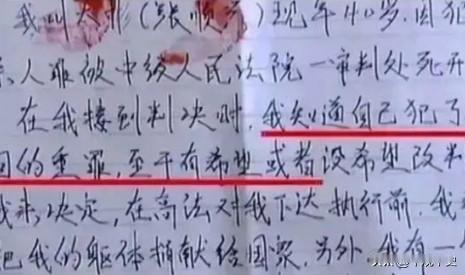 我叫大彬(张顺亮)现年40岁.因犯
杀人罪被中级人民法院一审判处死刑
在我接到判决时,我知道自己犯了
的重罪,至于有希望或者没希望改判
我来决定,在高法对我下达执行前,我
把我的躯体捐献给国家.另外,我有一